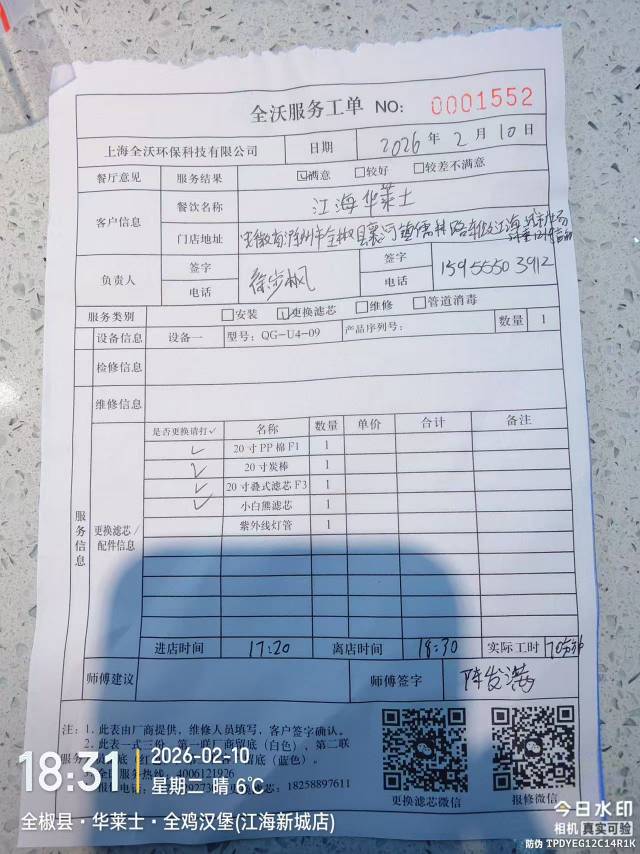 全沃服务工单 NO: 0001552
上海全沃环保科技有限公司 日期 2026 年 2 月 10 日
餐厅意见 服务结果 ☑满意 □较好 □较差不满意
客户信息 餐饮名称 江海华莱士
门店地址 安徽省滁州市全椒县襄河镇儒林路
负责人 签字 签字
电话 电话 15955503912
服务类别 □安装 ☑更换滤芯 □维修 □管道消毒
服务信息
设备信息 设备一 型号: QG-U4-09 产品序列号: 数量 1
检修信息
维修信息
更换滤芯/配件信息
是否更换请打✓ 名称 数量 单价 合计 备注
✓ 20寸PP棉F1 1
✓ 20寸炭棒 1
✓ 20寸叠式滤芯F3 1
✓ 小白熊滤芯 1
紫外线灯管 1
进店时间 17:20 离店时间 18:30 实际工时 70分钟
师傅建议 师傅签字
注: 1、此表由厂商提供，维修人员填写，客户签字确认。
2、此表一式三份，第一联厂商留底（白色），第二联
服务 底（蓝色）。
全国服务热线: 4006121926
18258897611
更换滤芯微信 报修微信
18:31
2026-02-10
星期二 晴 6℃
全椒县·华莱士·全鸡汉堡(江海新城店)
今日水印
相机 真实可验
防伪 TPDYEG12C14R1K